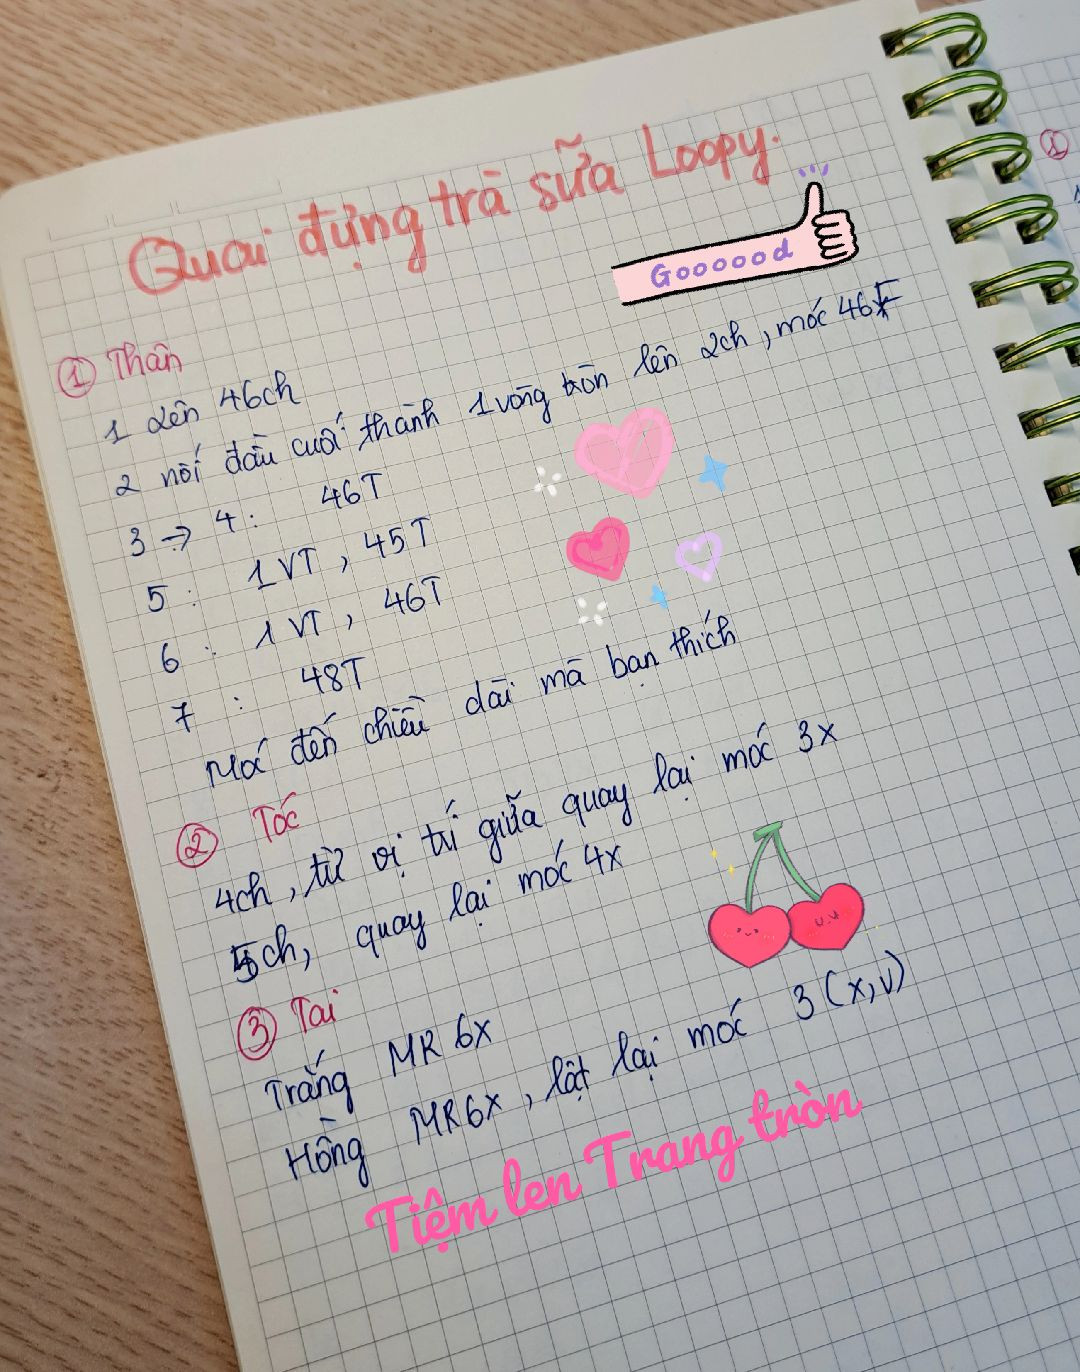 Quai đựng trà sữa Loopy.
Goooood
① Thân
1 Lên 46ch
2 nối đầu cuối thành 1 vòng tròn lên 2ch, móc 46F
3 → 4: 46T
5: 1VT, 45T
6: 1VT, 46T
7: 48T
Móc đến chiều dài mà bạn thích
② Tóc
4ch, từ vị trí giữa quay lại móc 3x
5ch, quay lại móc 4x
③ Tai
Trắng MR 6x
Hồng MR6x, lật lại móc 3(x,v)
Tiệm len Trang tròn